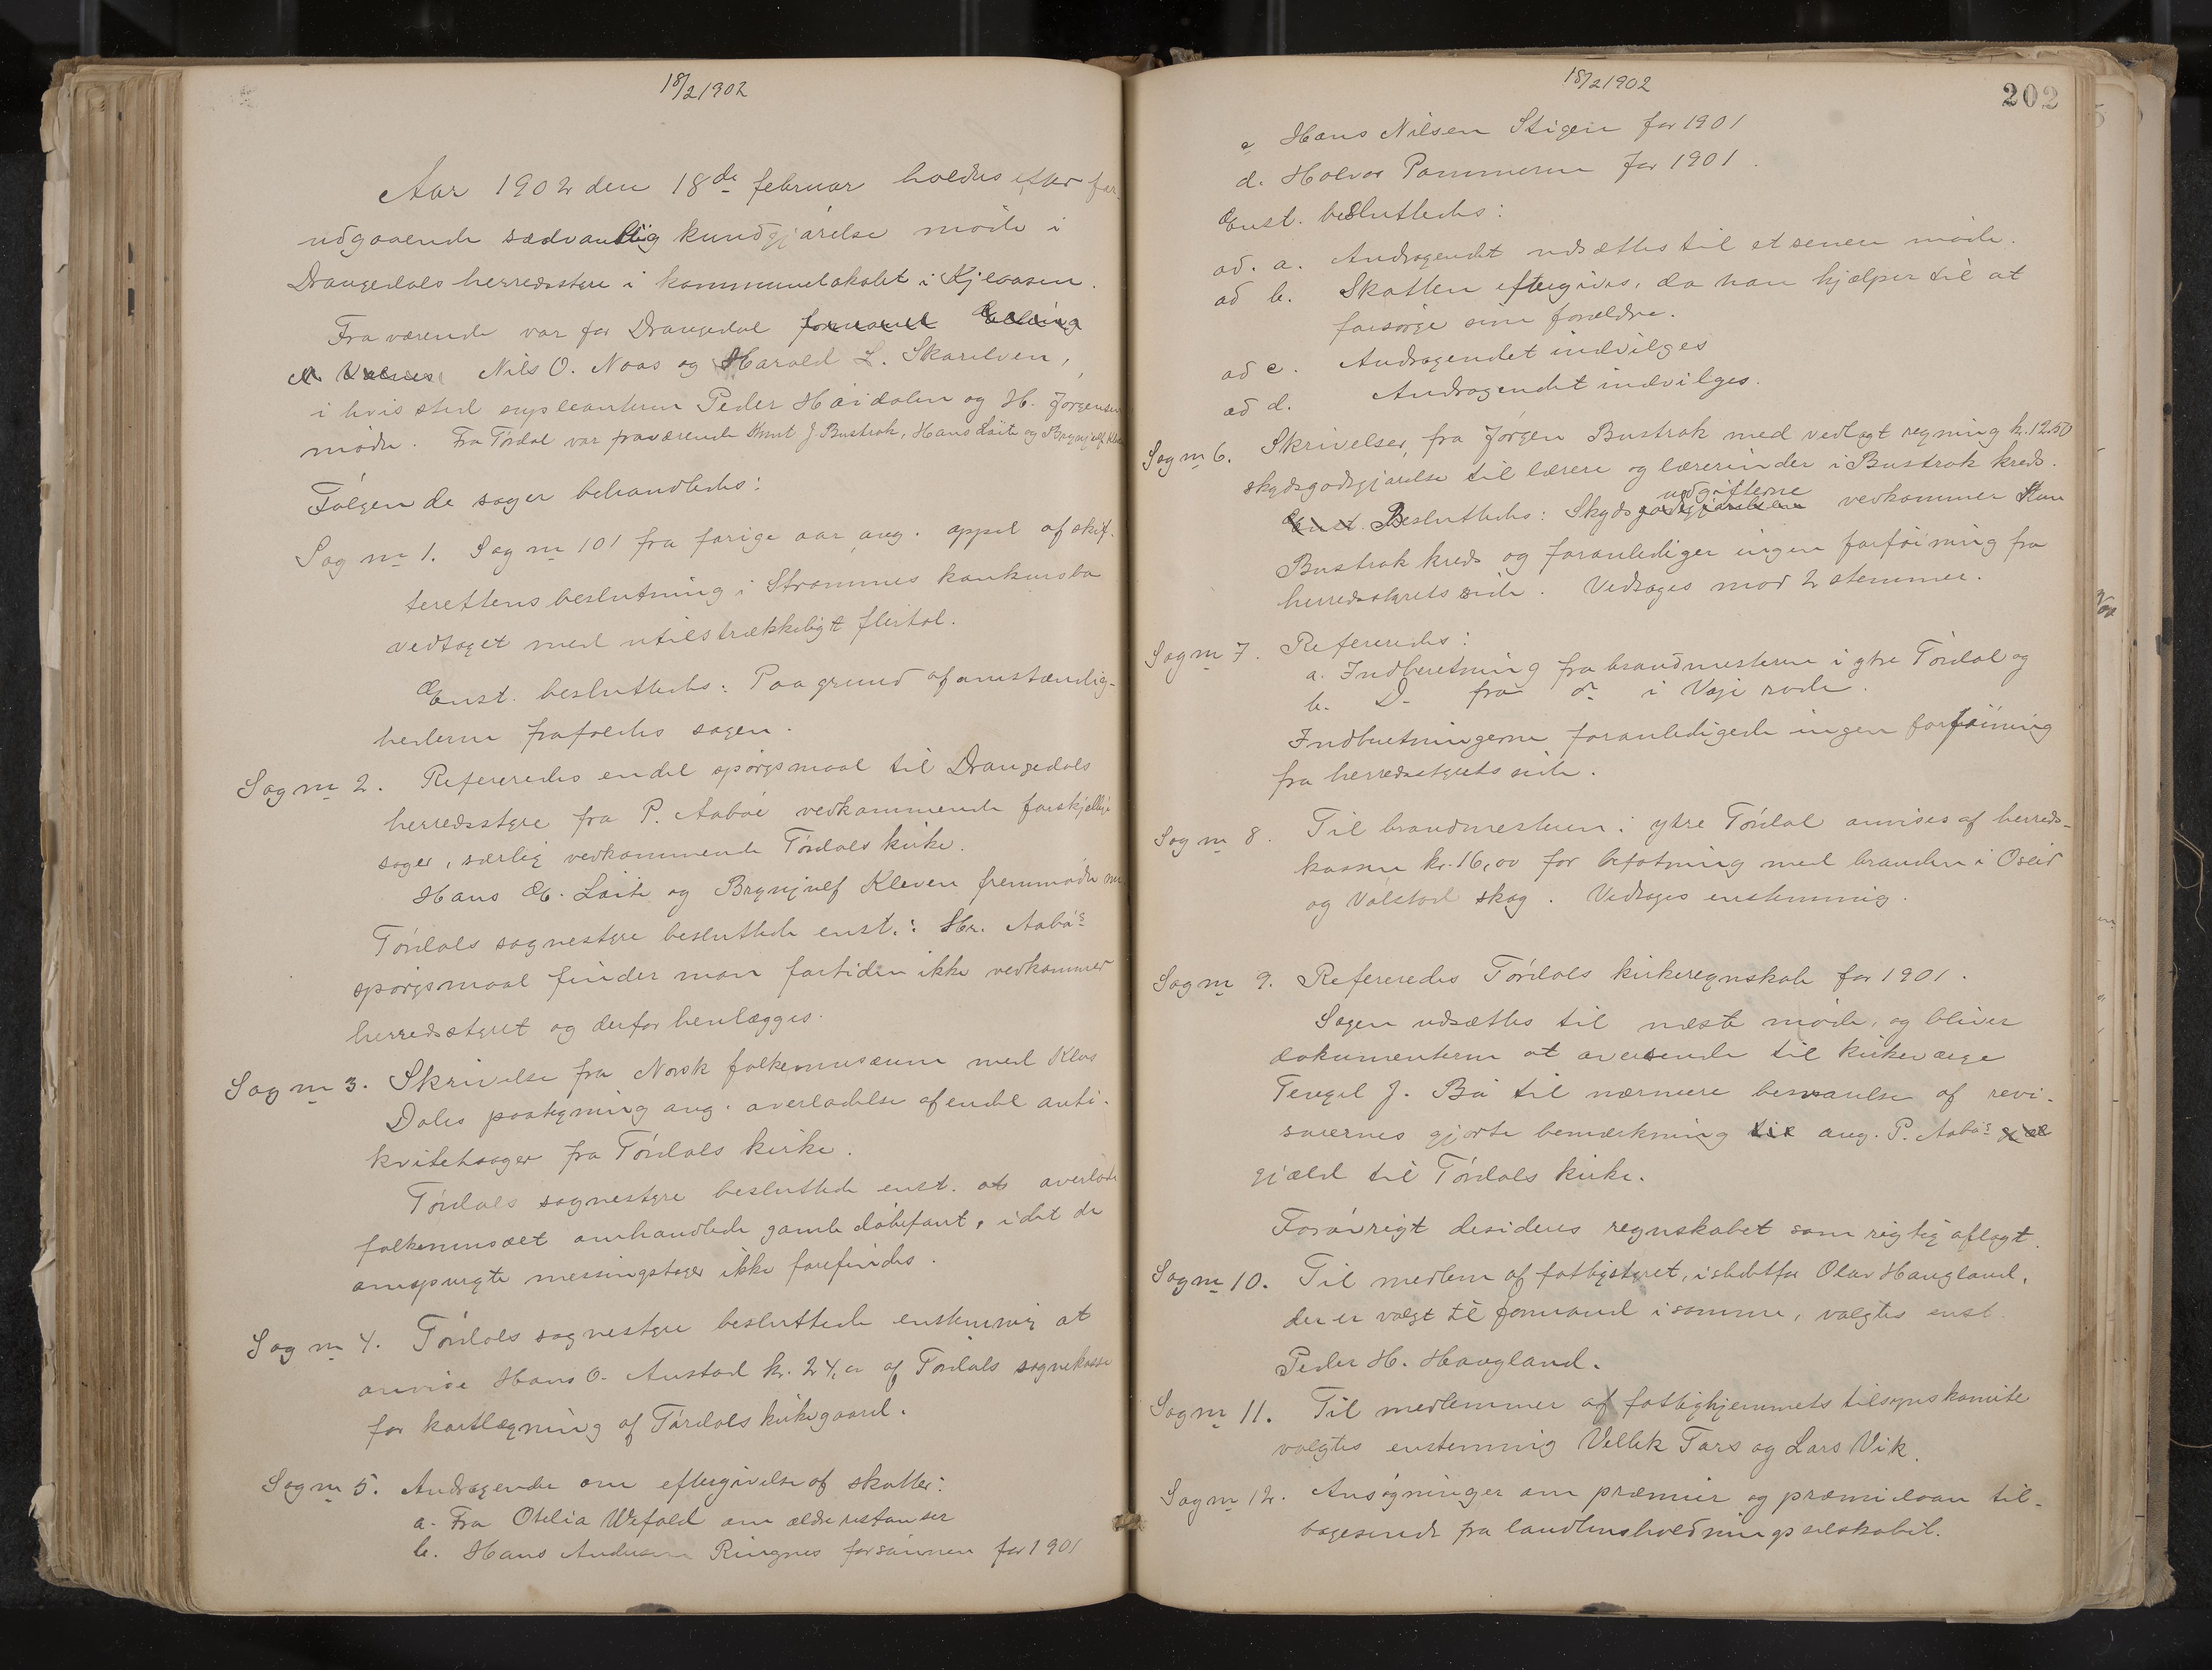 18/2 1902
Aar 1902 den 18de februar holdtes efter for-
udgaaende sædvanlig kundgjørelse møde i
Drangedals herredsstyre i kommunelokalet i Kjevosen.
Fraværende var for Drangedal formand
Nils O. Naas og Harald L. Skarilven,
i hvis sted supleanterne Peder Høidalen og H. Jørgensen
mødte. Fra Tørdal var fraværende Knut J Bustrak, Hans Løite og Brynjulf Kleven
Følgende sager behandledes:
Sag nr 1. Sag nr 101 fra forige aar ang. appel af skif-
terettens beslutning i Strømmes konkursbo
vedtaget med utilstrækkeligt flertal.
Enst. besluttedes: Paa grund af omstændig-
hederne frafaldes sagen.
Sag nr 2. Refereredes endel spørgsmaal til Drangedals
herredsstyre fra P. Aabøe vedkommende forskjellige
sager, særlig vedkommende Tørdals kirke.
Hans E. Løite og Brynjulf Kleven fremmødte nu
Tørdals sognestyre besluttede enst.: Hr. Aabøs
spørgsmaal finder man fortiden ikke vedkommer
herredsstyret og derfor henlægges.
Sag nr 3. Skrivelse fra Norsk folkemusæum med Klas
Dales paategning ang. overladelse af endel anti-
kvitetsager fra Tørdals kirke.
Tørdals sognestyre besluttede enst. at overlade
folkemusæet omhandlede gamle døbefont, idet de
omspurgte messingstager ikke forefindes.
Sag nr 4. Tørdals sognestyre besluttede enstemmig at
anvise Hans O. Austad kr. 24,00 af Tørdals sognekasse
for kartlægning af Tørdals kirkegaard.
Sag nr 5. Andragender om eftergivelse af skatter:
a. Fra Otelia Wefald om ældre restanser
b. Hans Andersen Ringnes for sønnen for 1901
18/2 1902
202
c Hans Nilsen Stigen for 1901
d. Halvor Pommeren for 1901.
Enst. besluttedes:
ad. a. Andragendet udsættes til et senere møde.
ad b. Skatten eftergives, da han hjælper til at
forsørge sine forældre.
ad c. Andragendet indvilges
ad d. Andragendet indvilges.
Sag nr 6. Skrivelse, fra Jørgen Bustrak med vedlagt regning kr. 12.50
skydsgodtgjørelse til lærere og lærerinder i Bustrak kreds.
udgifterne
Enst. Besluttedes: Skydsgodtgjørelsen vedkommer kun
Bustrak kreds og foranlediger ingen forføining fra
herredsstyrets side. Vedtages mod 2 stemmer.
Sag nr 7. Refereredes:
a. Indberetning fra brandmesteren i ytre Tørdal og
b. Do fra do i Vøje rode.
Indberetningerne foranledigede ingen forføining
fra herredsstyrets side.
Sag nr 8. Til brandmesteren i ytre Tørdal anvises af herreds-
kassen kr. 16,00 for befatning med branden i Oseid
og Valstad skog. Vedtages enstemmig.
Sag nr 9. Refereredes Tørdals kirkeregnskab for 1901.
Sagen udsættes til næste møde, og bliver
dokumenterne at oversende til kirkeværge
Tengel J. Bø til nærmere besvarelse af revi-
sorernes gjorte bemærkning til ang. P. Aabøs gjæl
gjæld til Tørdals kirke.
Forøvrigt desideres regnskabet som rigtig aflagt.
Sag nr 10. Til medlem af fattigstyret, istedetfor Olav Haugland,
der er valgt til formand i samme, valgtes enst.
Peder H. Haugland.
Sag nr 11. Til medlemmer af fattighjemmets tilsynskomite
valgtes enstemmig Vellek Tors og Lars Vik.
Sag nr 12. Ansøgninger om præmier og præmielaan til-
bagesendt fra landhusholdningsselskabet.